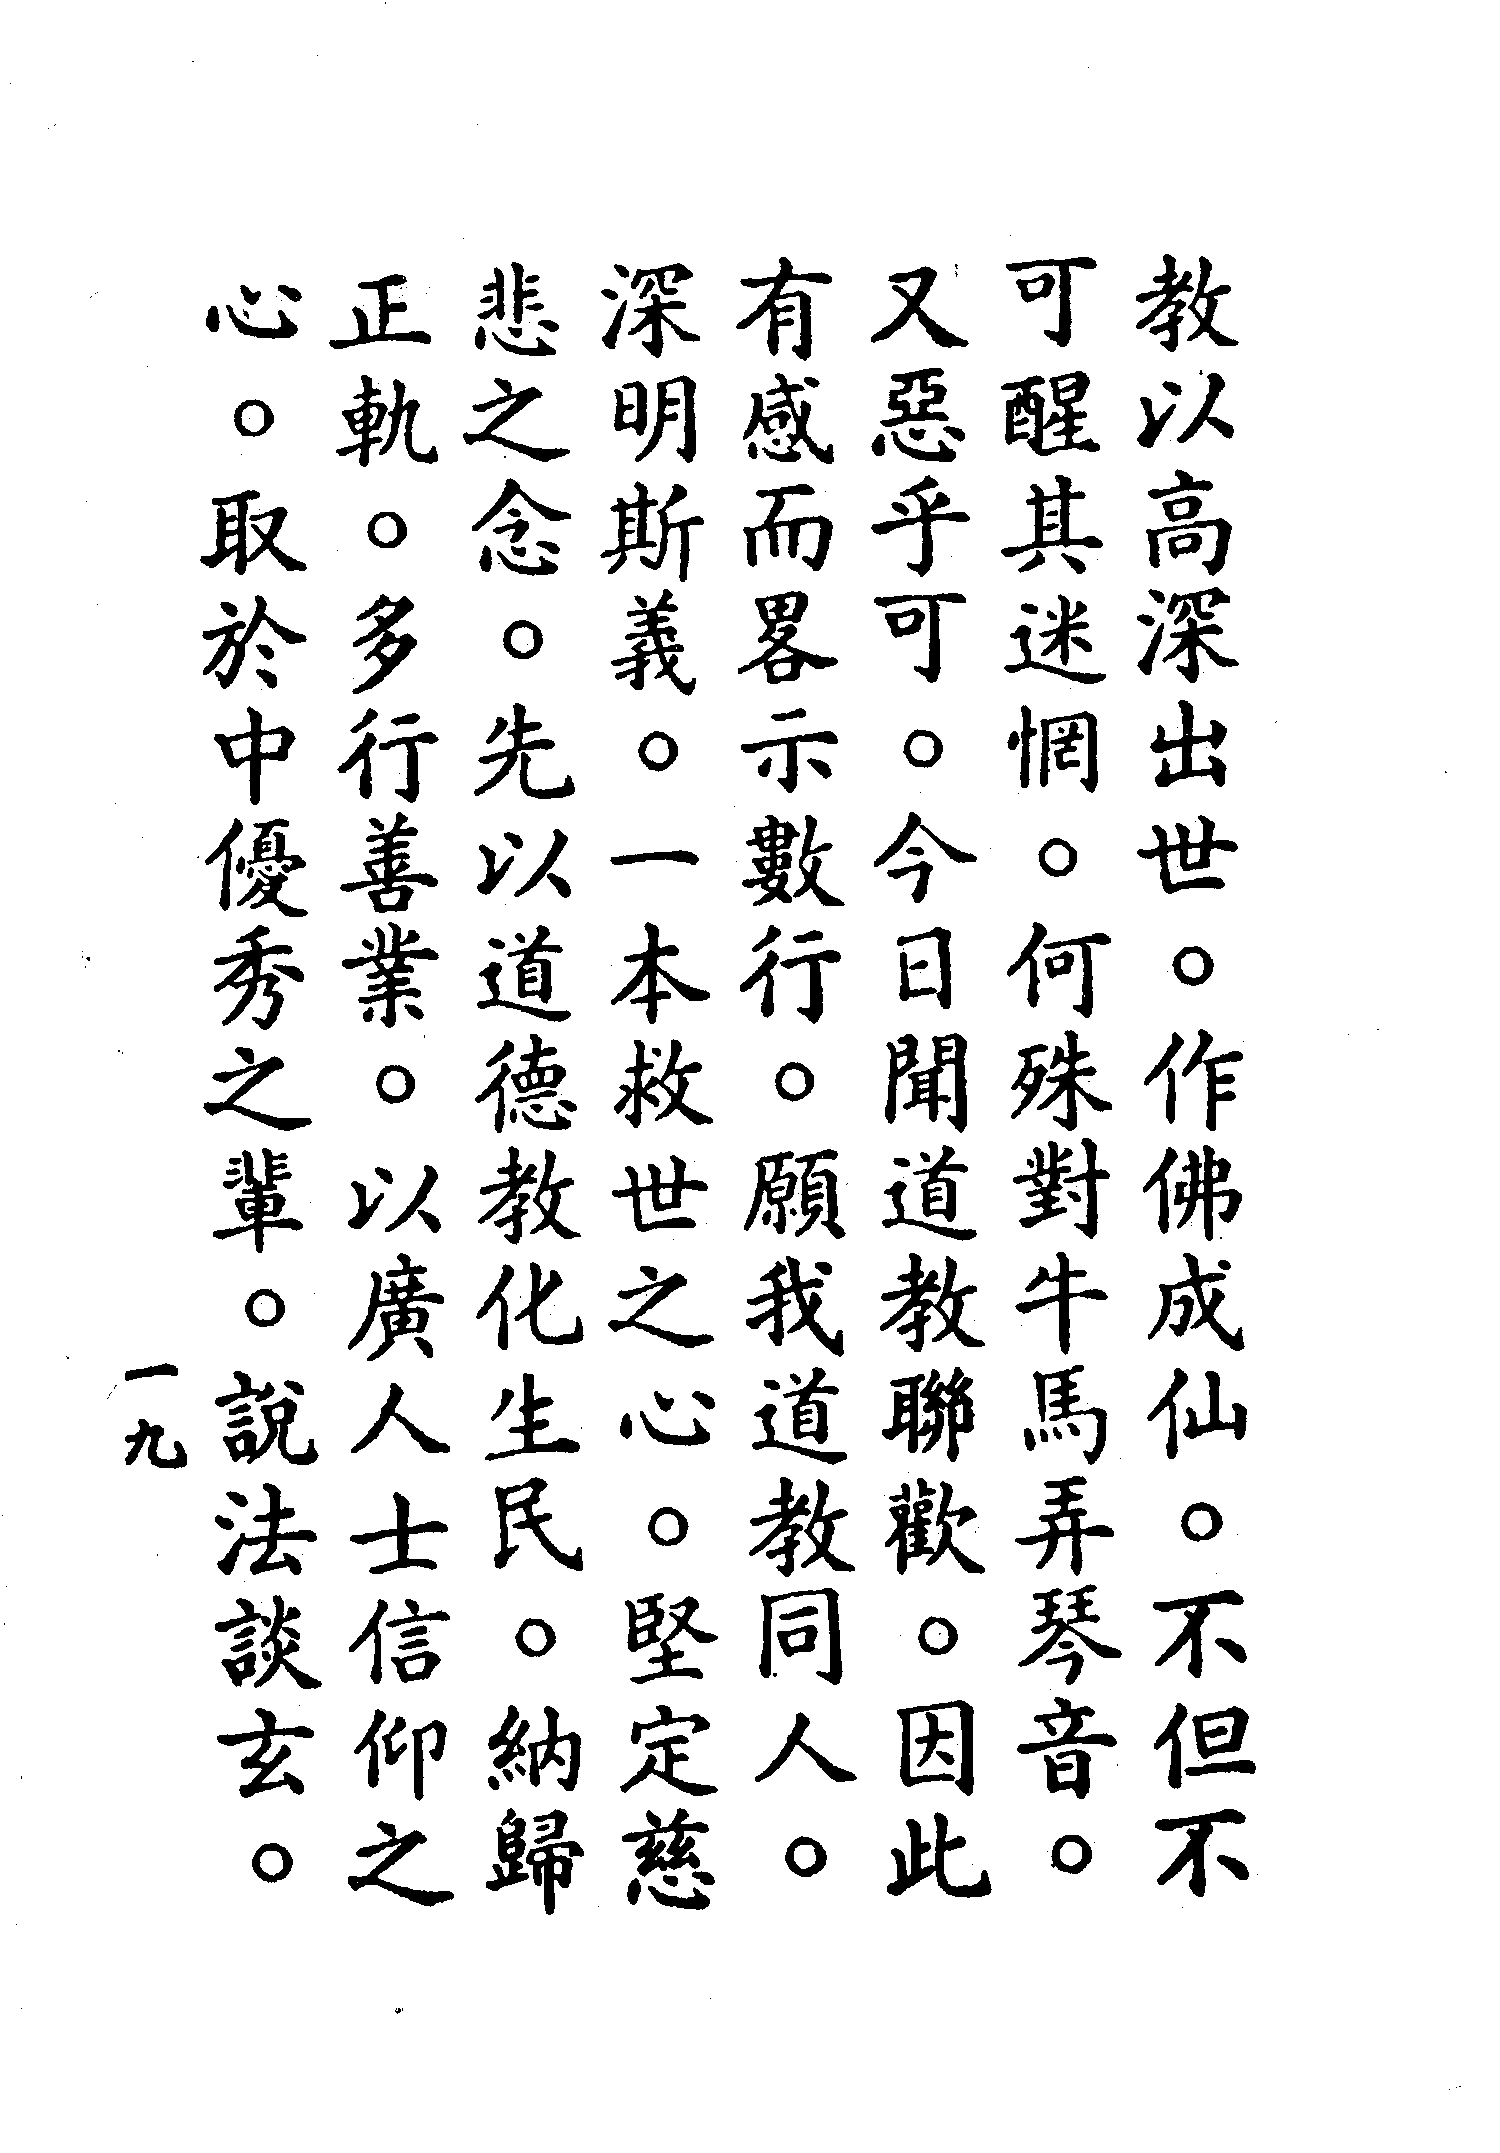 教以高深出世。作佛成仙。不但不
可醒其迷惘。何殊對牛馬弄琴音。
又惡乎可。今日聞道教聯歡。因此
有感而畧示數行。願我道教同人。
深明斯義。一本救世之心。堅定慈
悲之念。先以道德教化生民。納歸
正軌。多行善業。以廣人士信仰之
心。取於中優秀之輩。說法談玄。
一九